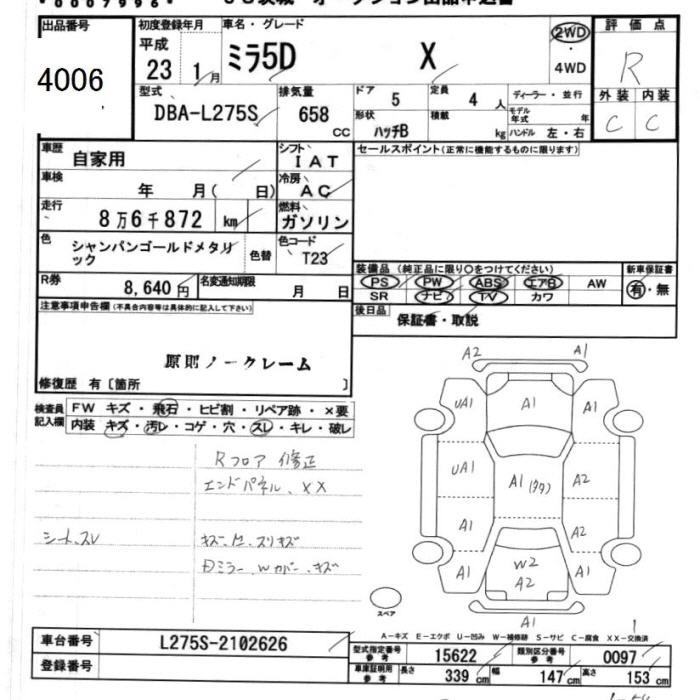 出品番号
4006
初度登録年月
平成
23 1月
車名・グレード
ミラ5D X
2WD
・
4WD
評価点
R
外装 内装
C C
型式
DBA-L275S
排気量
658
CC
ドア
5
定員
4人
形状
ハッチB
積載
kg
ディーラー・並行
モデル年式 年
ハンドル 左・右
車歴
自家用
シフト
IAT
車検
年 月( 日)
冷房
AC
走行
8万6千872 km
燃料
ガソリン
色
シャンパンゴールドメタリック
色替
色コード
T23
R券
8,640円
名変通知期限
月 日
セールスポイント(正常に機能するものに限ります)
装備品 (純正品に限り○をつけてください)
PS PW ABS エアB AW
SR ナビ TV カワ
新車保証書
有・無
後日品
保証書・取説
注意事項申告欄(不具合内容等は具体的に記入して下さい)
原則ノークレーム
修復歴 有〔箇所 〕
検査員記入欄
FW キズ・飛石・ヒビ割・リペア跡・×要
内装 キズ・汚レ・コゲ・穴・スレ・キレ・破レ
Rフロア 修正
エンドパネル、XX
シート、スレ
A2 A1
UA1 A1 A1
UA1 A1 A2
A1 A2
A1 W2 A1
A2
A1
スペア
A－キズ E－エクボ U－凹み W－補修跡 S－サビ C－腐食 XX－交換済
車台番号
L275S-2102626
登録番号
型式指定番号
参考
15622
類別区分番号
参考
0097
車庫証明用
参考
長さ
339 cm
幅
147 cm
高さ
153 cm